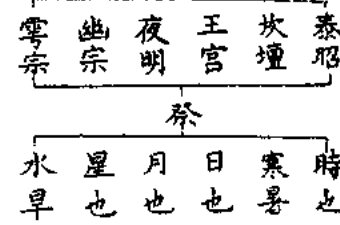 泰昭
坎壇
王宮
夜明
幽宗
雩宗
祭
時也
寒暑
日也
月也
星也
水旱